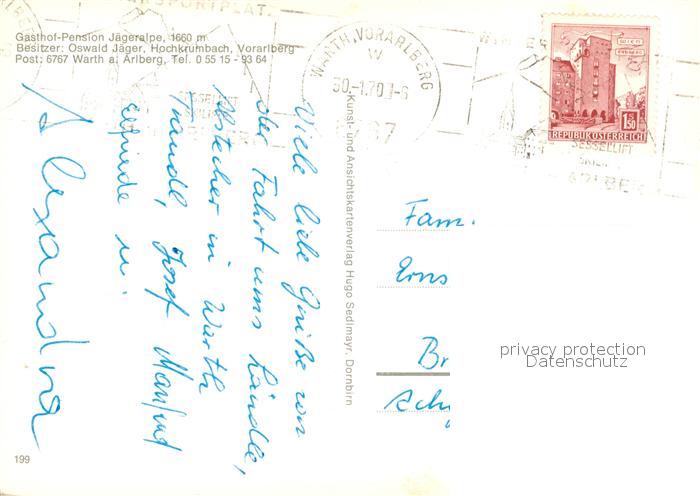 Gasthof-Pension Jägeralpe, 1660 m
Besitzer: Oswald Jäger, Hochkrumbach, Vorarlberg
Post: 6767 Warth a. Arlberg, Tel. 0 55 15 - 93 64
SPORTPLAT.
WARTH, VORARLBERG
30.-1.70
WIEN
ERDBERG
S 1.50
REPUBLIK ÖSTERREICH
SESSELLIFT
ARLBERG
Viele liebe Grüße von
der Fahrt ums Ländle,
Abstecher in Warth
Traudl, Josef Manfred
Elfriede u.
Alexandra
Kunst- und Ansichtskartenverlag Hugo Sedlmayr, Dornbirn
Fam.
Erns
Br
privacy protection
Datenschutz
199